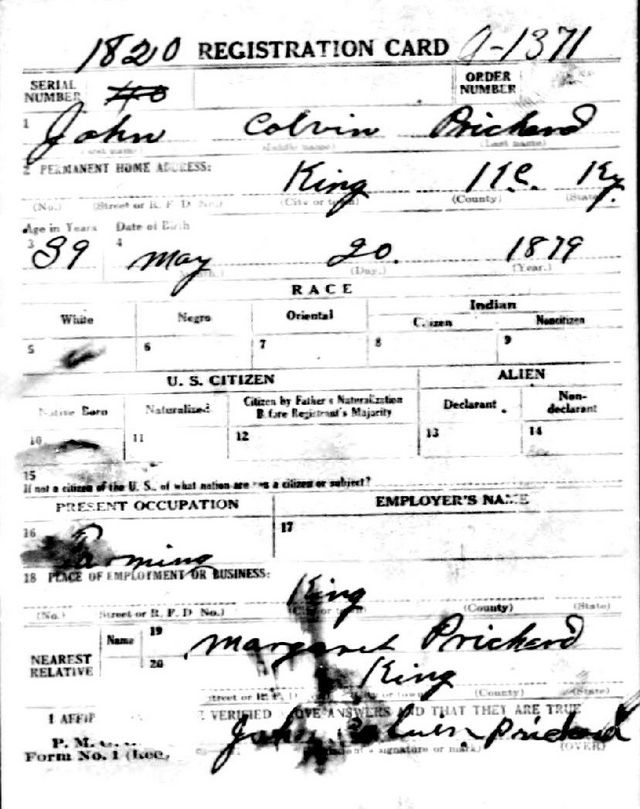 1820 REGISTRATION CARD A-1371
SERIAL NUMBER
ORDER NUMBER
1 John Colvin Prichard
(First name) (Middle name) (Last name)
2 PERMANENT HOME ADDRESS: King Ky.
(No.) (Street or R. F. D No.) (City or town) (County) (State)
Age in Years Date of Birth
3 39 4 May 20. 1879
(Month.) (Day.) (Year.)
RACE
White Negro Oriental Indian
Citizen Noncitizen
5 6 7 8 9
U. S. CITIZEN ALIEN
Native Born Naturalized Citizen by Father's Naturalization Before Registrant's Majority Declarant. Non-declarant
10 11 12 13 14
15
If not a citizen of the U. S., of what nation are you a citizen or subject?
PRESENT OCCUPATION EMPLOYER'S NAME
16 Farming 17
18 PLACE OF EMPLOYMENT OR BUSINESS:
King
(No.) (Street or R. F. D No.) (City or town) (County) (State)
NEAREST RELATIVE Name 19 Margaret Prichard
20 King
(Street or R. F. D (City or town) (County) (State)
I AFFIRM VERIFIED ABOVE ANSWERS AND THAT THEY ARE TRUE
P. M. G. O.
Form No. 1 (Red) John Colvin Prichard
(Registrant's signature or mark) (OVER)